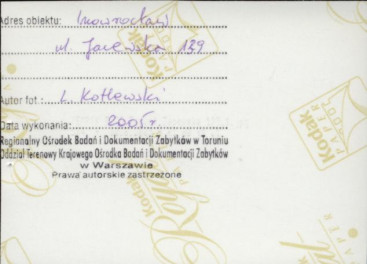 Adres obiektu: Inowrocław
ul. Jacewska 139
Autor fot.: L. Kotlewski
Data wykonania: 2005 r.
Regionalny Ośrodek Badań i Dokumentacji Zabytków w Toruniu
Oddział Terenowy Krajowego Ośrodka Badań i Dokumentacji Zabytków
w Warszawie
Prawa autorskie zastrzeżone
Kodak
PAPER
Kodak
PAPER
Kodak